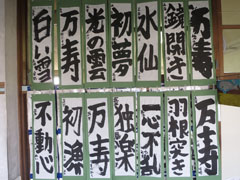 万寿
鏡開き
水仙
初夢
光の雲
万寿
白い雪
万寿
羽根突き
一心不乱
独楽
万寿
初漁
不動心